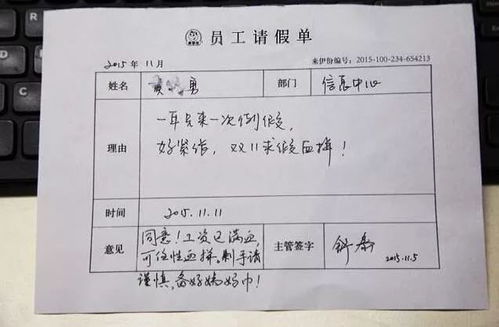 员工请假单
2015年11月
来伊份编号：2015-100-234-654213
姓名 黄 勇 部门 信息中心
理由 一年只来一次例假,
好紧张, 双11求假血拼！
时间 2015.11.11
意见 同意！工资已满血,
可任性血拼。剁手请
谨慎, 备好姨妈巾！
主管签字
2015.11.5